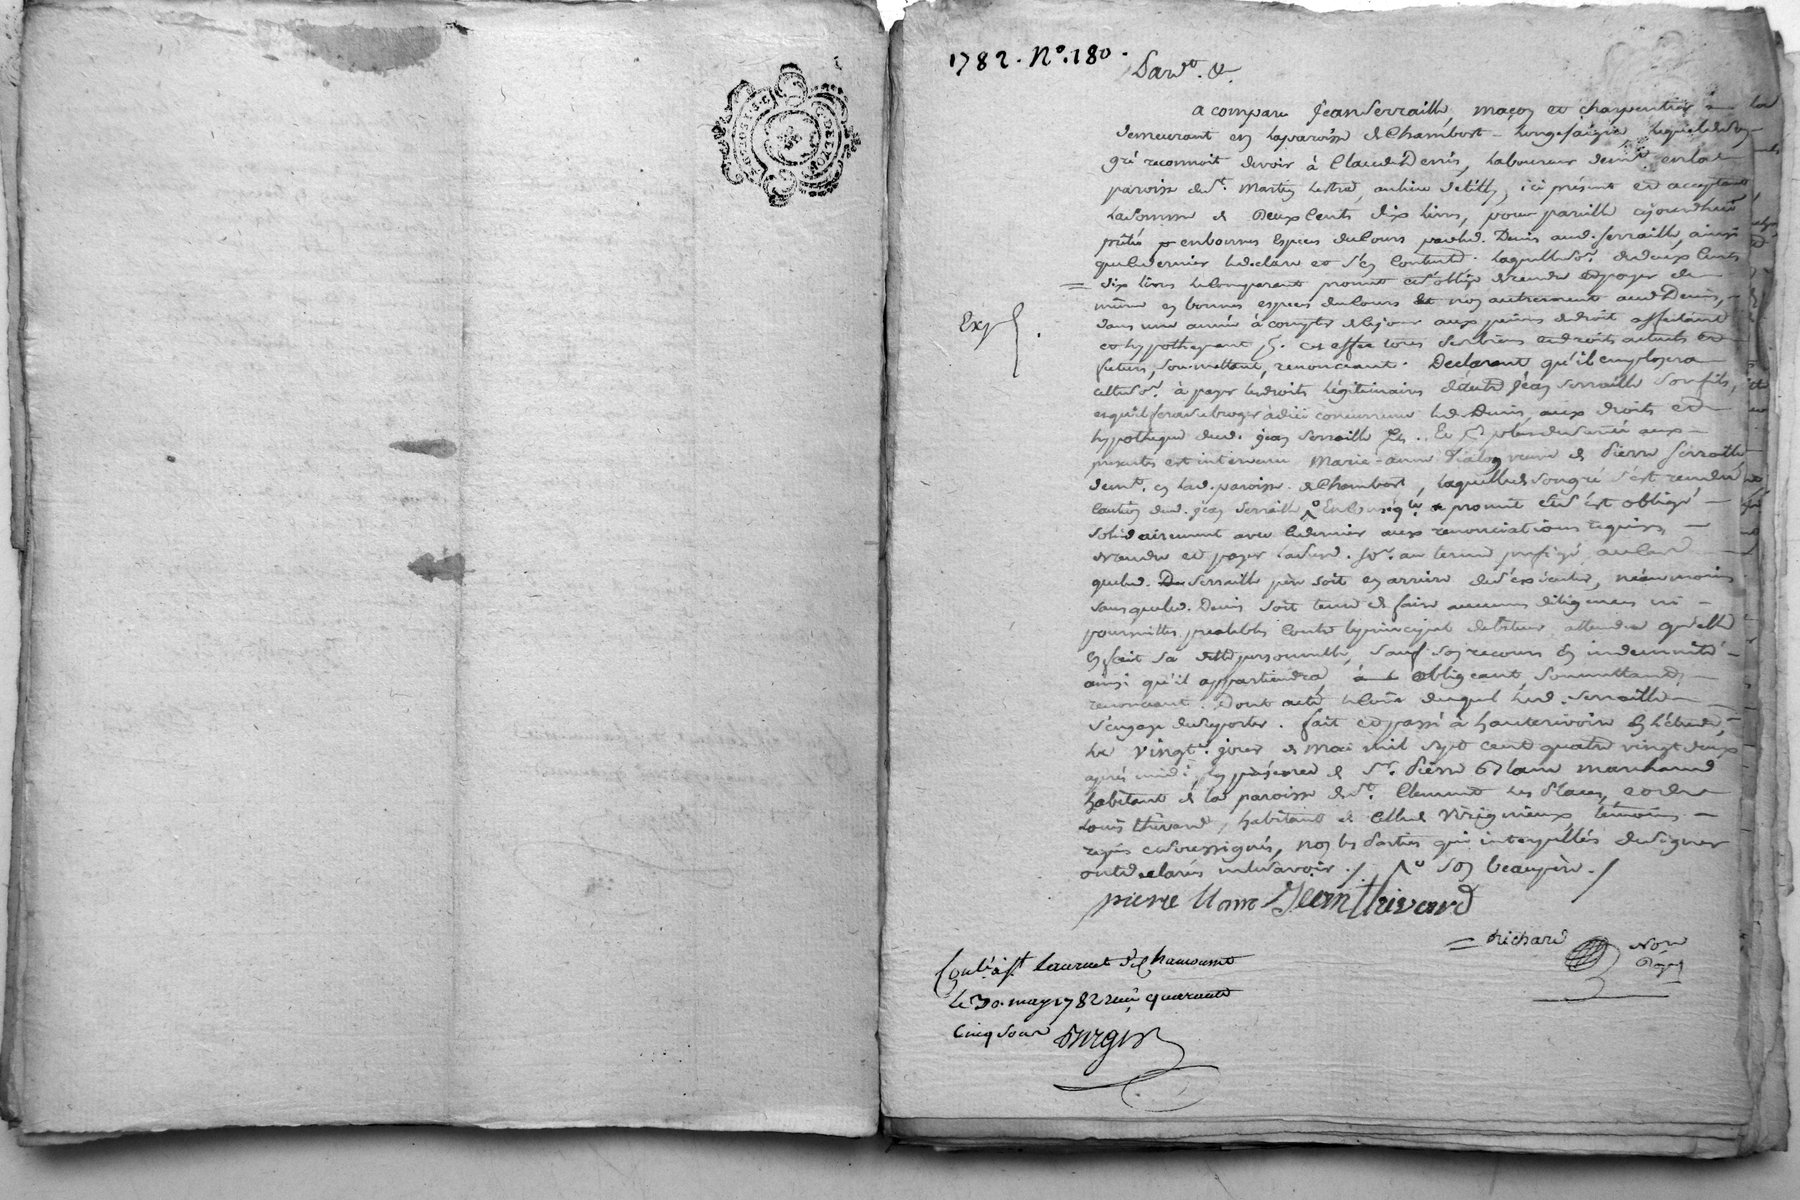 1782. N.o 180.
Pard.t &.
a comparu Jean Serraille, maçon et charpentier
demeurant en la paroisse de Chambost-Longesaigne lequel de son
gré reconnoit devoir à Claude Denis, laboureur dem.t en la
paroisse de S.t Martin Lestrat, au lieu de , ici présent et acceptant
la somme de Deux Cents dix livres, pour pareille ajourdhui
prêtée en bonnes Espèces du Cours par led. Denis aud. Serraille, ainsi
que ce dernier le declare et s'en contente. laquelle so.e de deux Cents
dix livres le Comparant promet et s'oblige de rendre et payer de
même en bonnes espèces du Cours et non autrement aud. Denis,
Exp
dans une année à compter de ce jour aux peines de droit affectant
et hypothequant à cet effet tous ses biens et droits actuels et
futurs, soumettant, renonceant. Declarant, qu'il employera
cette so.e à payer les droits légitimaires de autre Jean Serraille son fils,
et qu'il fera subroger à dûe concurrence led. Denis, aux droits et
hypotheque dud. Jean Serraille fils. Et
presentes est intervenue Marie-anne veuve de Pierre Serraille
dem.t en lad. paroisse de Chambost, laquelle de son gré s'est rendue
Caution dud. jean Serraille promet et s'est obligé
Solidairement avec ce dernier aux renonciations requises
de rendre et payer lad. so.e au terme prefigé au cas
que led. Serraille père soit en arriere de s'executer, néanmoins
sans que led. Denis soit tenu de faire aucunes diligences ni
poursuittes prealables Contre le principal debiteur attendu qu'elle
en fait sa dette personnelle, sauf son recours en indemnité
ainsi qu'il appartiendra, obligeant Soumettant,
renonceant. Dont acte duquel led. Serraille
s'engage de rapporter. fait et passé à hauterivoire En l'étude,
Le vingt.e jour de mai mil sept cent quatre vingt deux
après midi en présence de S.r Pierre Blanc marchand
habitant de la paroisse de S.t Clement Les Places, et de
Louis thivard, habitant de Celle de Virigneux témoins
requis et soussignés, non les Parties qui interpellées de signer
ont declarés ne le savoir./. son beaupère./
pierre blanc Jean thivard
Richard Not.re
Royal
Con.lé à S.t Laurent de Chamousset
le 30. may 1782 reçû quarante
Cinq sous